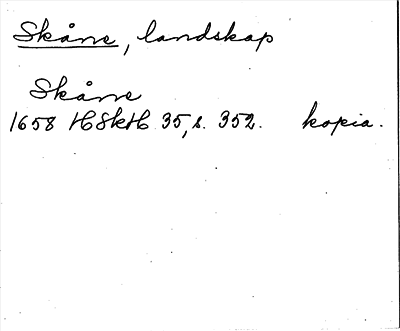 Skåne, landskap
Skåne
1658 HSkH 35, s. 352. kopia.